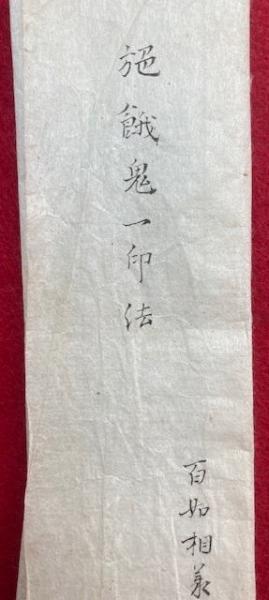 施餓鬼一印法
百如相義